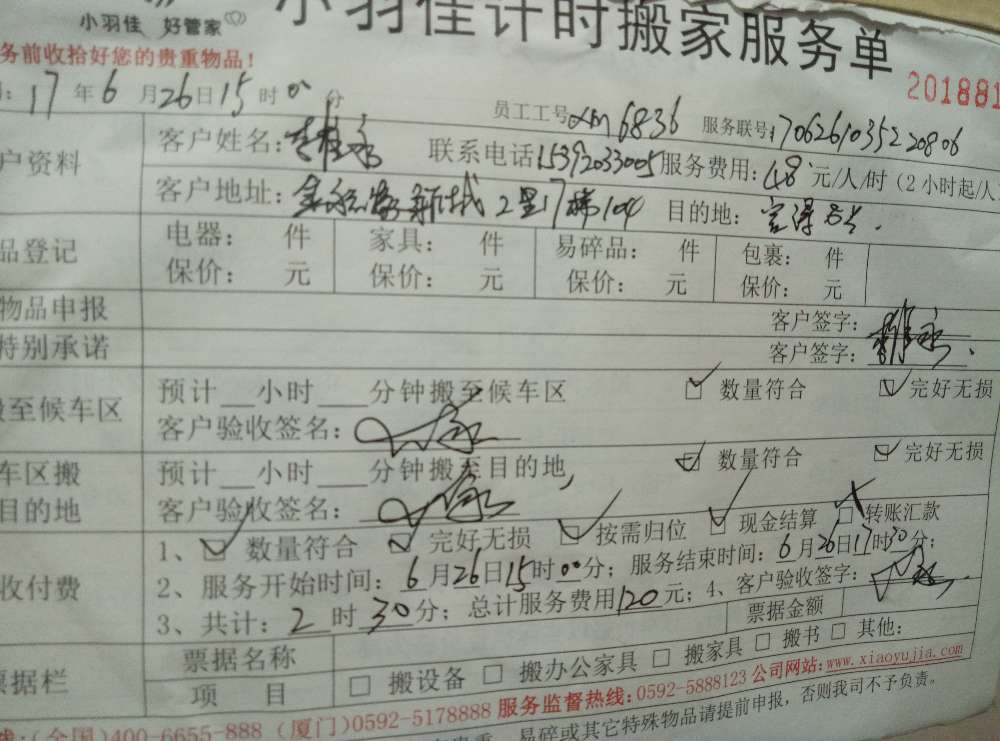 小羽佳 好管家
小羽佳计时搬家服务单
务前收拾好您的贵重物品!
201881
17年6月26日15时00分
员工工号xm6836 服务联号:1706261035220806
户资料
客户姓名: 联系电话15392033005服务费用:48元/人/时(2小时起/人
客户地址: 新城2里17梯104 目的地:
品登记
电器: 件 家具: 件 易碎品: 件 包裹: 件
保价: 元 保价: 元 保价: 元 保价: 元
物品申报 客户签字:
特别承诺 客户签字:
搬至候车区
预计__小时___分钟搬至候车区 数量符合 完好无损
客户验收签名:
车区搬
目的地
预计__小时___分钟搬至目的地, 数量符合 完好无损
客户验收签名:
收付费
1、 数量符合 完好无损 按需归位 现金结算 转账汇款
2、服务开始时间:6月26日15时00分;服务结束时间:6月26日17时30分;
3、共计:2时30分;总计服务费用120元;4、客户验收签字:
票据栏
票据名称 票据金额
项 目 □ 搬设备 □ 搬办公家具 □ 搬家具 □ 搬书 □ 其他:
线:(全国)400-6655-888(厦门)0592-5178888 服务监督热线:0592-5888123 公司网站:www.xiaoyujia.com
贵重、易碎或其它特殊物品请提前申报,否则我司不予负责。